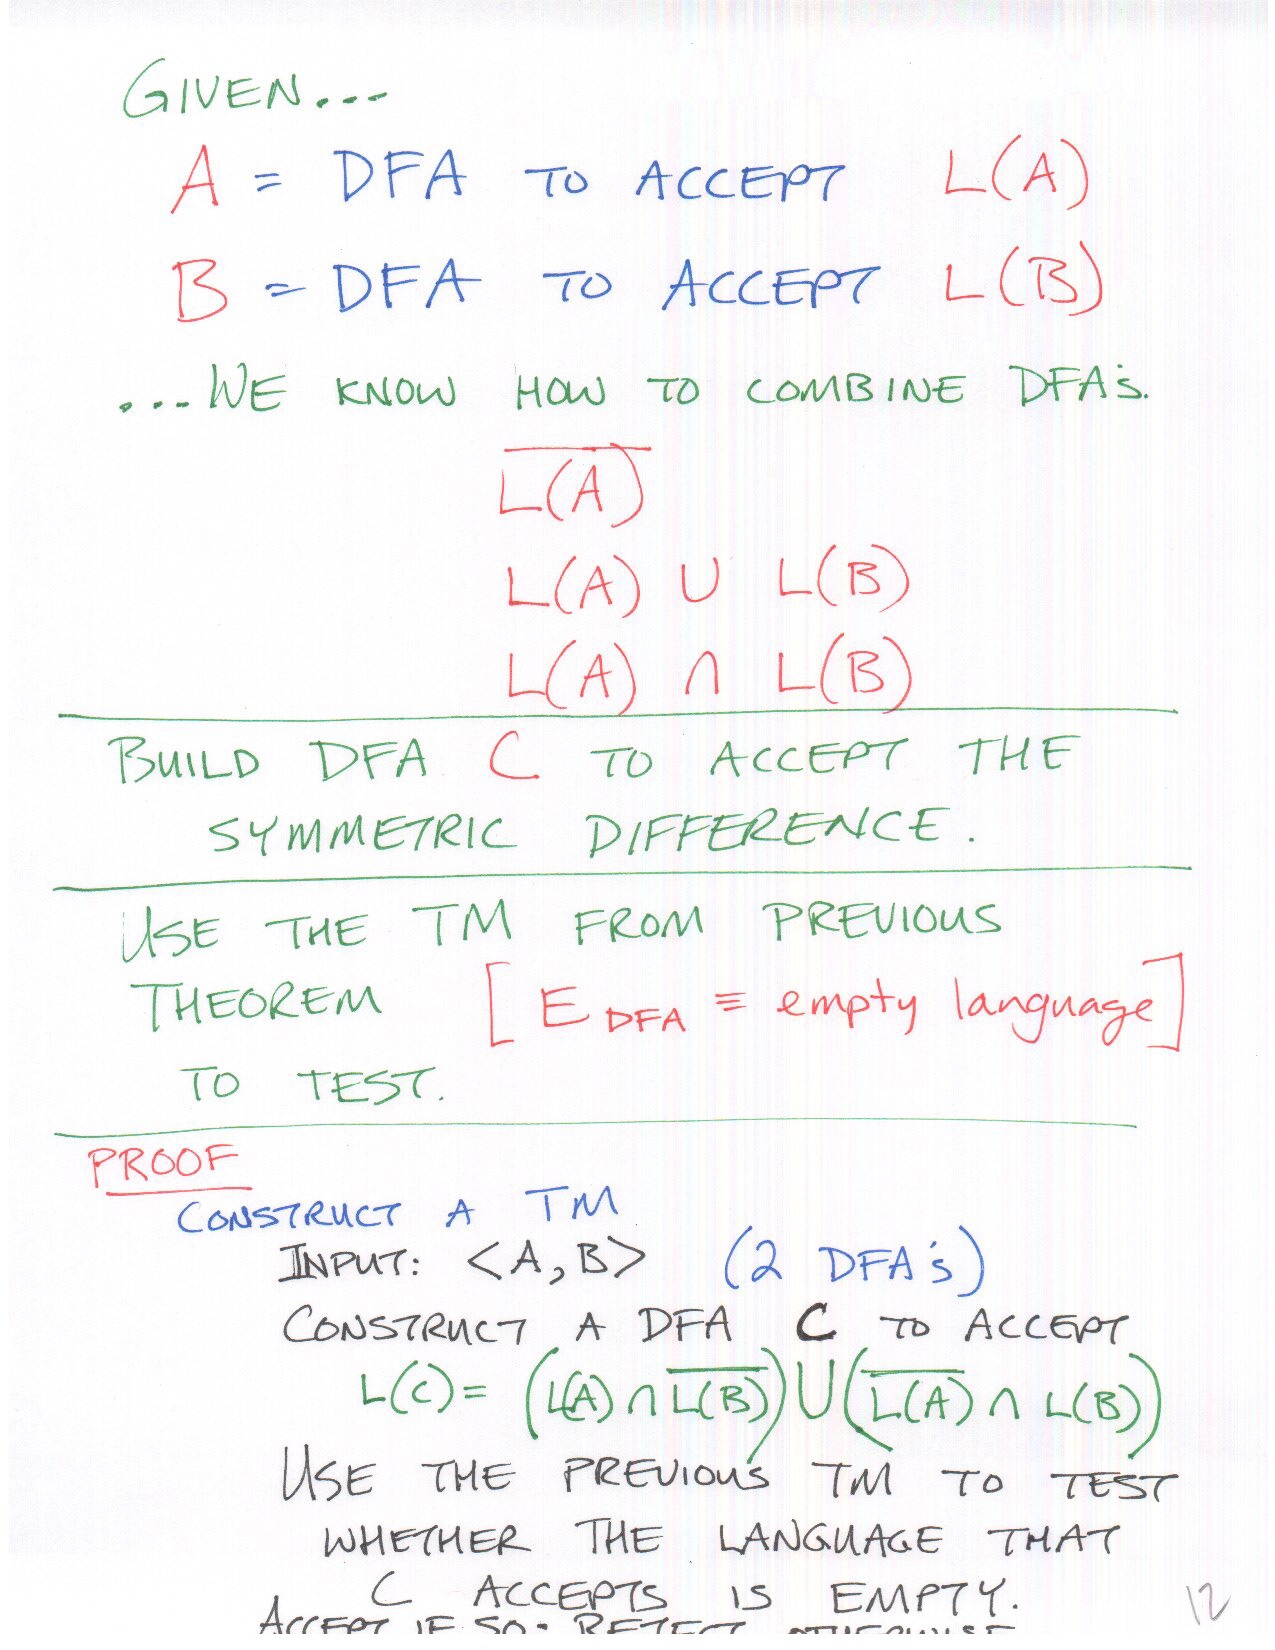 GIVEN...
A = DFA TO ACCEPT L(A)
B = DFA TO ACCEPT L(B)
...WE KNOW HOW TO COMBINE DFA's.
L̅(̅A̅)̅
L(A) ∪ L(B)
L(A) ∩ L(B)
BUILD DFA C TO ACCEPT THE
SYMMETRIC DIFFERENCE.
USE THE TM FROM PREVIOUS
THEOREM [E DFA ≡ empty language]
TO TEST.
PROOF
CONSTRUCT A TM
INPUT: <A,B> (2 DFA's)
CONSTRUCT A DFA C TO ACCEPT
L(C) = (L(A) ∩ L̅(̅B̅)̅) ∪ (L̅(̅A̅)̅ ∩ L(B))
USE THE PREVIOUS TM TO TEST
WHETHER THE LANGUAGE THAT
C ACCEPTS IS EMPTY.
ACCEPT IF SO; REJECT OTHERWISE
12